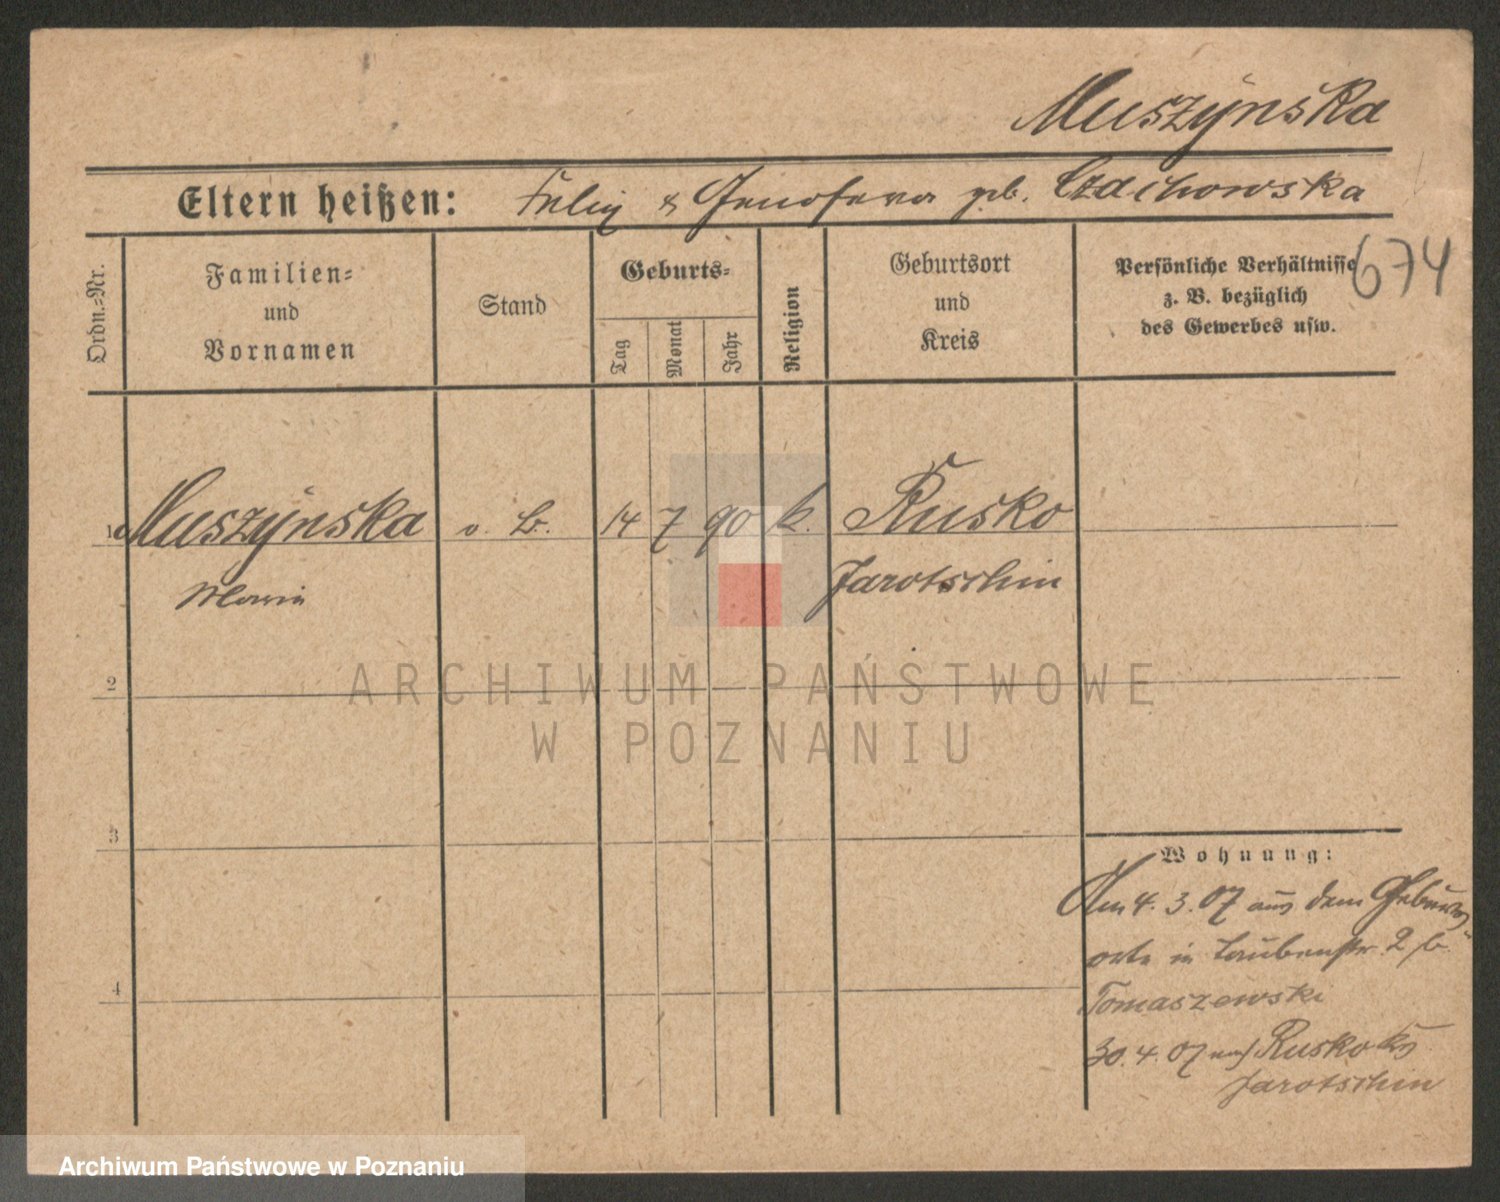 Muszyńska
Eltern heißen: Felix & Genofeva geb. Czachowska
674
Ordn.-Nr.
Familien-
und
Vornamen
Stand
Geburts-
Tag
Monat
Jahr
Religion
Geburtsort
und
Kreis
Persönliche Verhältnisse
z. B. bezüglich
des Gewerbes usw.
1 Muszyńska o. B. 14 7 90 k. Rusko
Marie Jarotschin
2
3
4
Wohnung:
Am 4. 3. 07 aus dem Geburts
orte in Taubenstr. 2 b.
Tomaszewski
30. 4. 07 nach Rusko Krs
Jarotschin
ARCHIWUM PAŃSTWOWE
W POZNANIU
Archiwum Państwowe w Poznaniu